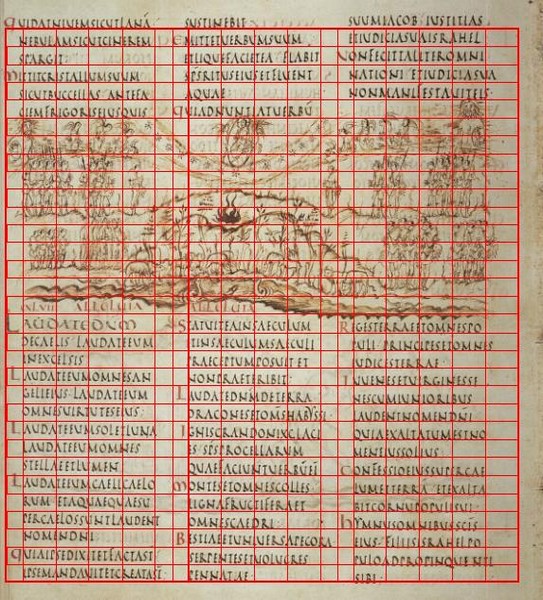 QUIDATNIUEMSICUTLANA
NEBULAMSICUTCINEREM
SPARGIT
MITTITCRISTALLUMSUUM
SICUTBUCCELLAS ANTEFA
CIEMFRIGORISEIUSQUIS
SUSTINEBIT
EMITTETUERBUMSUUM
ETLIQUEFACIETEA FLABIT
SPIRITUSEIUSETFLUENT
AQUAE
QUIADNUNTIATUERBŪ
SUUMIACOB IUSTITIAS
ETIUDICIASUAISRAHEL
NONFECITTALITEROMNI
NATIONI ETIUDICIASUA
NONMANIFESTAUITEIS
ALLELUIA
LAUDATEDNM
DECAELIS LAUDATEEUM
INEXCELSIS
LAUDATEEUMOMNESAN
GELIEIUS LAUDATEEUM
OMNESUIRTUTESEIUS
LAUDATEEUMSOLETLUNA
LAUDATEEUMOMNES
STELLAEETLUMEN
LAUDATEEUMCAELICAELO
RUM ETAQUAEQUAESU
PERCAELOSSUNTLAUDENT
NOMENDNI
QUIAIPSEDIXITETFACTASŪ
IPSEMANDAUITETCREATASŪ
ALLELUIA
STATUITEAINSAECULUM
ETINSAECULUMSAECULI
PRAECEPTUMPOSUIT ET
NONPRAETERIBIT
LAUDATEDNMDETERRA
DRACONESETOMSHABYSSI
IGNISGRANDONIXGLACI
ES SPSPROCELLARUM
QUAEFACIUNTUERBŪEI
MONTESETOMNESCOLLES
LIGNAFRUCTIFERAET
OMNESCAEDRI
BESTIAEETUNIUERSAPECORA
SERPENTESETUOLUCRES
PENNATAE
REGESTERRAEETOMNESPO
PULI PRINCIPESETOMNES
IUDICESTERRAE
IUUENESETUIRGINESSE
NESCUMIUNIORIBUS
LAUDENTNOMENDNI
QUIAEXALTATUMESTNO
MENEIUSSOLIUS
CONFESSIOEIUSSUPERCAE
LUMETTERRĀ ETEXALTA
BITCORNUPOPULISUI
HYMNUSOMNIBUSSCIS
EIUS FILIISISRAHELPO
PULOADPROPINQUANTI
SIBI